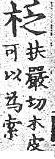 柉
扶嚴切木皮
可以為索